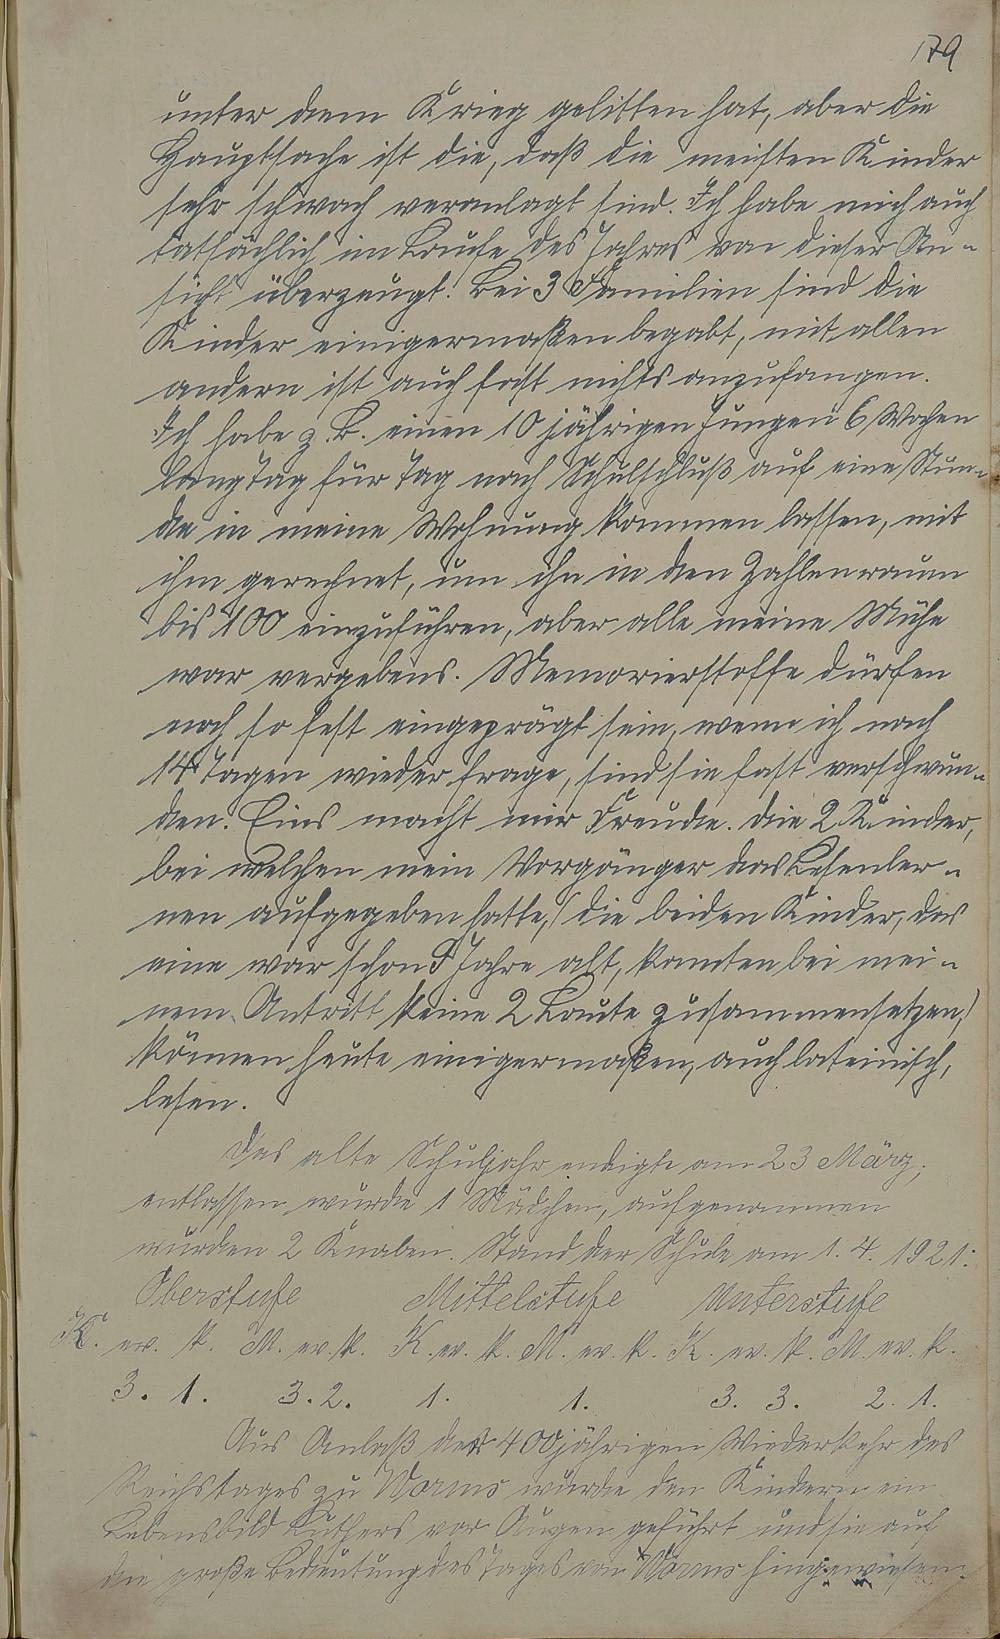 179
unter dem Krieg gelitten hat, aber die
Hauptsache ist die, daß die meisten Kinder
sehr schwach veranlagt sind. Ich habe mich auch
tatsächlich im Laufe des Jahres von dieser An-
sicht überzeugt. Bei 3 Familien sind die
Kinder einigermaßen begabt, mit allen
andern ist auch fast nichts anzufangen.
Ich habe z. B. einen 10 jährigen Jungen 6 Wochen
lang Tag für Tag nach Schulschluß auf eine Stun-
de in meine Wohnung kommen lassen, mit
ihm gerechnet, um ihn in den Zahlenraum
bis 100 einzuführen, aber alle meine Mühe
war vergebens. Memorierstoffe dürfen
noch so fest eingeprägt sein, wenn ich nach
14 Tagen wieder frage, sind sie fast verschwun-
den. Eins macht mir Freude. Die 2 Kinder,
bei welchen mein Vorgänger das Lesenler-
nen aufgegeben hatte, (die beiden Kinder, das
eine war schon 9 Jahre alt, konnten bei mei-
nem Antritt keine 2 Laute zusammensetzen,)
können heute einigermaßen, auch lateinisch,
lesen.
Das alte Schuljahr endigte am 23 März;
entlassen wurde 1 Mädchen, aufgenommen
wurden 2 Knaben. Stand der Schule am 1. 4. 1921:
Oberstufe Mittelstufe Unterstufe
K. ev. k. M. ev. k. K. ev. k. M. ev. k. K. ev. k. M. ev. k.
3. 1. 3. 2. 1. 1. 3. 3. 2. 1.
Aus Anlaß der 400jährigen Wiederkehr des
Reichstages zu Worms wurde den Kindern ein
Lebensbild Luthers vor Augen geführt und sie auf
die große Bedeutung des Tages von Worms hingewiesen.